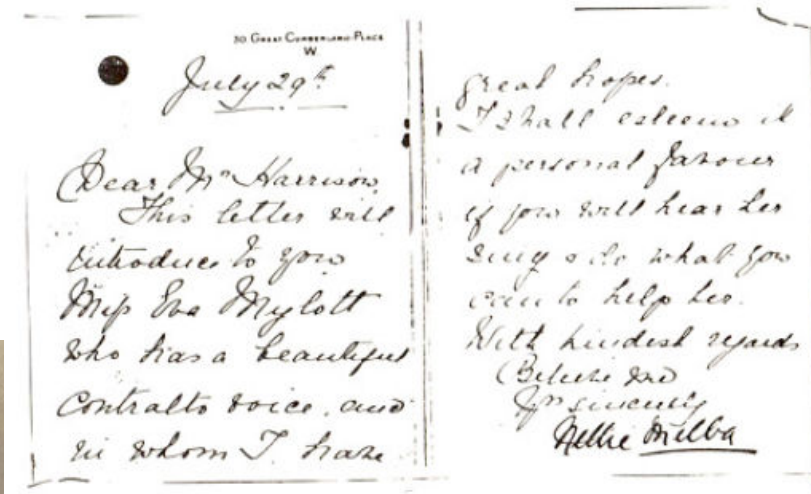 30 GREAT CUMBERLAND PLACE
W
July 29th
Dear Mr Harrison,
This letter will
introduce to you
Miss Eva Mylott
who has a beautiful
contralto voice, and
in whom I have
great hopes.
I shall esteem it
a personal favour
if you will hear her
sing & do what you
can to help her.
With kindest regards
Believe me
Yrs sincerely
Nellie Melba